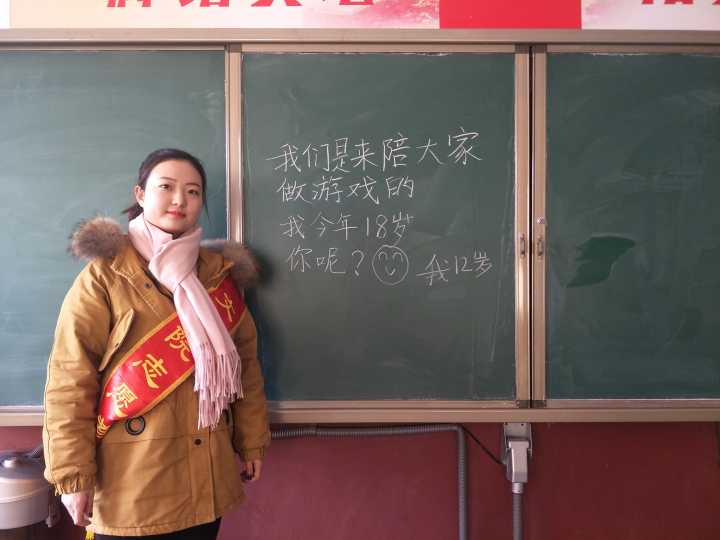 我们是来陪大家
做游戏的
我今年18岁
你呢？
我12岁
文
院志愿者